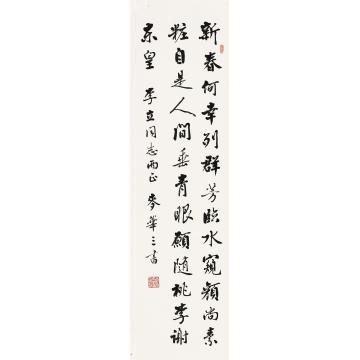 新春何幸列群芳臨水窺顏尚素
粧自是人間垂青眼願隨桃李謝
東皇 李立同志兩正 麥華三書